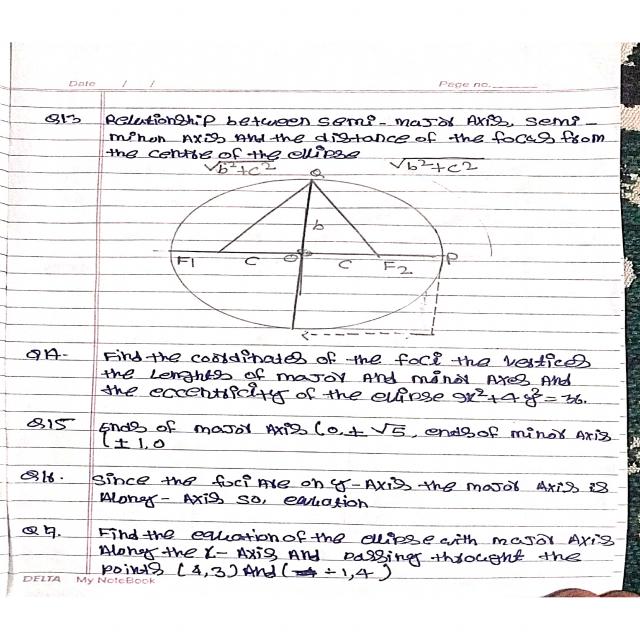 Date / /
Page no.
Q13 Relationship between semi-major Axis, semi-
minor Axis And the distance of the focus from
the centre of the ellipse
√b²+c² √b²+c²
Q
b
F1 C O C F2 P
Q14- Find the coordinates of the foci the vertices
the lenghts of major And minor Axes And
the eccentricity of the ellipse 9x²+4y²=36.
Q15 Ends of major Axis (0, ± √5, ends of minor Axis
(± 1,0
Q16. Since the foci Are on y-Axis the major Axis is
Along- Axis so, equation
Find the equation of the ellipse with major Axis
Along the x- Axis And passing throught the
points (4,3) And ( -1,4)
DELTA My NoteBook